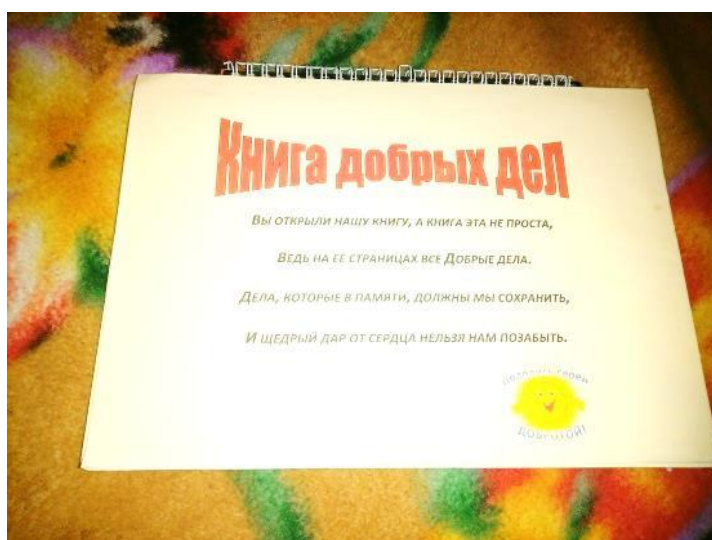 Книга добрых дел
Вы открыли нашу книгу, а книга эта не проста,
Ведь на ее страницах все Добрые дела.
Дела, которые в памяти, должны мы сохранить,
И щедрый дар от сердца нельзя нам позабыть.
добротой!